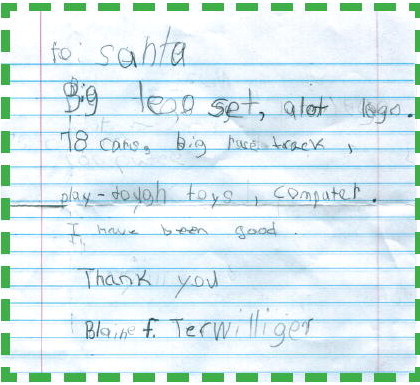 to: santa
Big lego set, alot lego.
78 cars, big race track,
play-dough toys, computer.
I have been good.
Thank you
Blaine f. Terwilliger